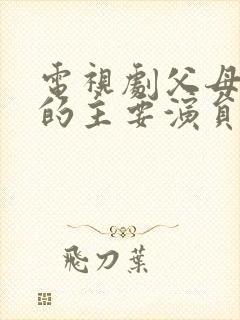 電視劇父母
的主要演員
飛刀葉